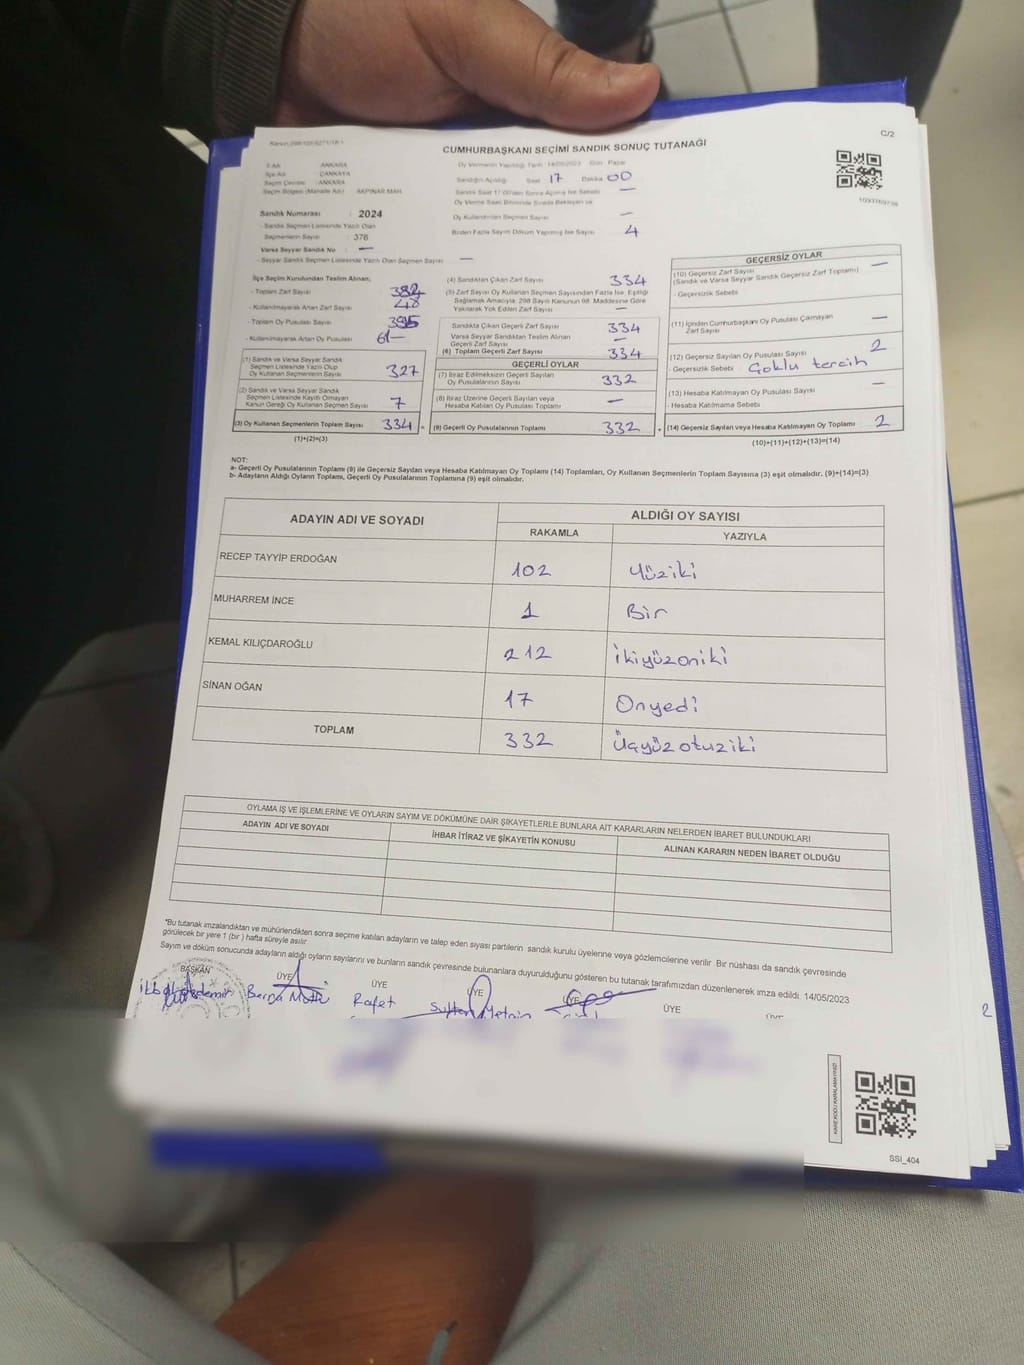 C/2
CUMHURBAŞKANI SEÇİMİ SANDIK SONUÇ TUTANAĞI
1093769738
İl Adı : ANKARA
İlçe Adı : ÇANKAYA
Seçim Çevresi : ANKARA
Seçim Bölgesi (Mahalle Adı) : AKPINAR MAH.
Oy Vermenin Yapıldığı Tarih : 14/05/2023 Gün : Pazar
Sandığın Açıldığı Saat 17 Dakika 00
Sandık Saat 17.00'den Sonra Açılmış İse Sebebi —
Oy Verme Saati Bitiminde Sırada Bekleyen ve
Oy Kullandırılan Seçmen Sayısı —
Birden Fazla Sayım Döküm Yapılmış İse Sayısı 4
Sandık Numarası : 2024
- Sandık Seçmen Listesinde Yazılı Olan
Seçmenlerin Sayısı : 376
Varsa Seyyar Sandık No : —
- Seyyar Sandık Seçmen Listesinde Yazılı Olan Seçmen Sayısı : —
İlçe Seçim Kurulundan Teslim Alınan;
- Toplam Zarf Sayısı 382
- Kullanılmayarak Artan Zarf Sayısı 48
- Toplam Oy Pusulası Sayısı 395
- Kullanılmayarak Artan Oy Pusulası 61
(1) Sandık ve Varsa Seyyar Sandık
Seçmen Listesinde Yazılı Olup
Oy Kullanan Seçmenlerin Sayısı 327
(2) Sandık ve Varsa Seyyar Sandık
Seçmen Listesinde Kayıtlı Olmayan
Kanun Gereği Oy Kullanan Seçmen Sayısı 7
(3) Oy Kullanan Seçmenlerin Toplam Sayısı 334
(1)+(2)=(3)
(4) Sandıktan Çıkan Zarf Sayısı 334
(5) Zarf Sayısı Oy Kullanan Seçmen Sayısından Fazla İse, Eşitliği
Sağlamak Amacıyla; 298 Sayılı Kanunun 98. Maddesine Göre
Yakılarak Yok Edilen Zarf Sayısı —
Sandıkta Çıkan Geçerli Zarf Sayısı 334
Varsa Seyyar Sandıktan Teslim Alınan
Geçerli Zarf Sayısı —
(6) Toplam Geçerli Zarf Sayısı 334
GEÇERLİ OYLAR
(7) İtiraz Edilmeksizin Geçerli Sayılan
Oy Pusulalarının Sayısı 332
(8) İtiraz Üzerine Geçerli Sayılan veya
Hesaba Katılan Oy Pusulası Toplamı —
(9) Geçerli Oy Pusulalarının Toplamı 332
GEÇERSİZ OYLAR
(10) Geçersiz Zarf Sayısı
(Sandık ve Varsa Seyyar Sandık Geçersiz Zarf Toplamı) —
- Geçersizlik Sebebi
(11) İçinden Cumhurbaşkanı Oy Pusulası Çıkmayan
Zarf Sayısı —
(12) Geçersiz Sayılan Oy Pusulası Sayısı 2
- Geçersizlik Sebebi Çoklu tercih
(13) Hesaba Katılmayan Oy Pusulası Sayısı —
- Hesaba Katılmama Sebebi
(14) Geçersiz Sayılan veya Hesaba Katılmayan Oy Toplamı 2
(10)+(11)+(12)+(13)=(14)
NOT:
a- Geçerli Oy Pusulalarının Toplamı (9) ile Geçersiz Sayılan veya Hesaba Katılmayan Oy Toplamı (14) Toplamları, Oy Kullanan Seçmenlerin Toplam Sayısına (3) eşit olmalıdır. (9)+(14)=(3)
b- Adayların Aldığı Oyların Toplamı, Geçerli Oy Pusulalarının Toplamına (9) eşit olmalıdır.
ADAYIN ADI VE SOYADI
ALDIĞI OY SAYISI
RAKAMLA YAZIYLA
RECEP TAYYİP ERDOĞAN 102 Yüziki
MUHARREM İNCE 1 Bir
KEMAL KILIÇDAROĞLU 212 İkiyüzoniki
SİNAN OĞAN 17 Onyedi
TOPLAM 332 Üçyüzotuziki
OYLAMA İŞ VE İŞLEMLERİNE VE OYLARIN SAYIM VE DÖKÜMÜNE DAİR ŞİKAYETLERLE BUNLARA AİT KARARLARIN NELERDEN İBARET BULUNDUKLARI
ADAYIN ADI VE SOYADI İHBAR İTİRAZ VE ŞİKAYETİN KONUSU ALINAN KARARIN NEDEN İBARET OLDUĞU
*Bu tutanak imzalandıktan ve mühürlendikten sonra seçime katılan adayların ve talep eden siyasi partilerin sandık kurulu üyelerine veya gözlemcilerine verilir. Bir nüshası da sandık çevresinde
görülecek bir yere 1 (bir) hafta süreyle asılır.
Sayım ve döküm sonucunda adayların aldığı oyların sayılarını ve bunların sandık çevresinde bulunanlara duyurulduğunu gösteren bu tutanak tarafımızdan düzenlenerek imza edildi. 14/05/2023
BAŞKAN ÜYE ÜYE ÜYE ÜYE ÜYE ÜYE
Rafet
2
SSI_404